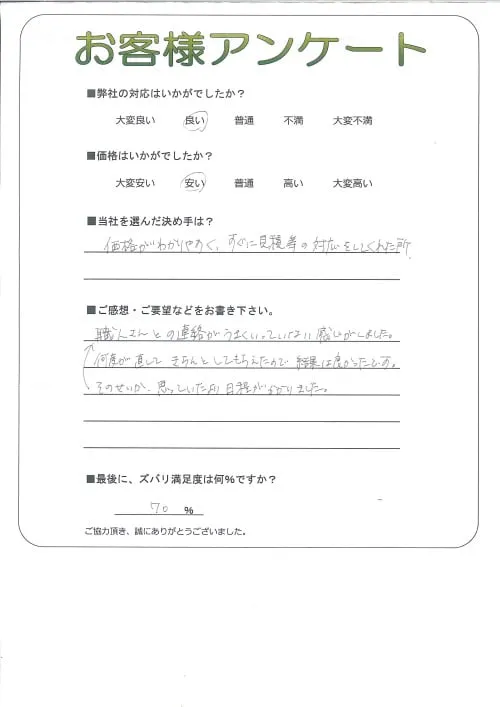 お客様アンケート
■弊社の対応はいかがでしたか？
大変良い 良い 普通 不満 大変不満
■価格はいかがでしたか？
大変安い 安い 普通 高い 大変高い
■当社を選んだ決め手は？
価格がわかりやすく、すぐに見積等の対応をしてくれた所
■ご感想・ご要望などをお書き下さい。
職人さんとの連絡がうまくいっていない感じがしました。
何度か直して きちんとしてもらえたので 結果は良かったです。
そのせいか、思っていたより日程がかかりました。
■最後に、ズバリ満足度は何％ですか？
70 ％
ご協力頂き、誠にありがとうございました。